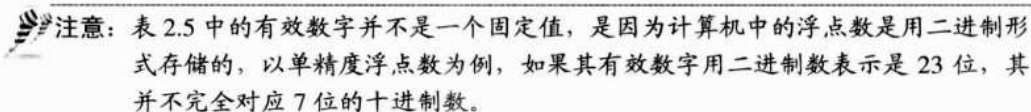 注意：表 2.5 中的有效数字并不是一个固定值，是因为计算机中的浮点数是用二进制形
式存储的，以单精度浮点数为例，如果其有效数字用二进制数表示是 23 位，其
并不完全对应 7 位的十进制数。